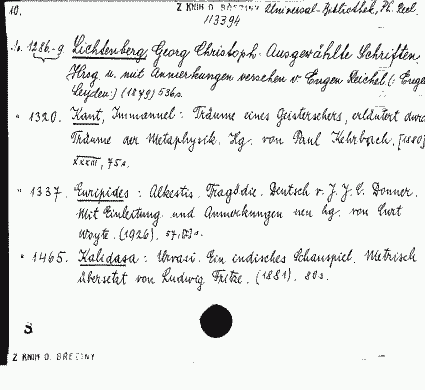 10. Z KNIH O. BŘEZINY Universal-Bibliothek, Ph. Recl.
113394
No. 1286-9 Lichtenberg, Georg Christoph: Ausgewählte Schriften
Hrsg u. mit Anmerkungen versehen v Eugen Reichel (: Euge
Leyden:) (1879) 536s.
" 1320. Kant, Immanuel: Träume eines Geistersehers, erläutert durc
Träume der Metaphysik. Hg. von Paul Kehrbach, [1880]
XXXIII, 75s.
" 1337. Euripides: Alkestis. Tragödie. Deutsch v. J. J. C. Donner.
Mit Einleitung und Anmerkungen neu hg. von Curt
Woyte. (1926). s.
" 1465. Kalidasa: Urvasi. Ein indisches Schauspiel. Metrisch
übersetzt von Ludwig Fritze. (1881). 80s.
S
Z KNIH O. BŘEZINY